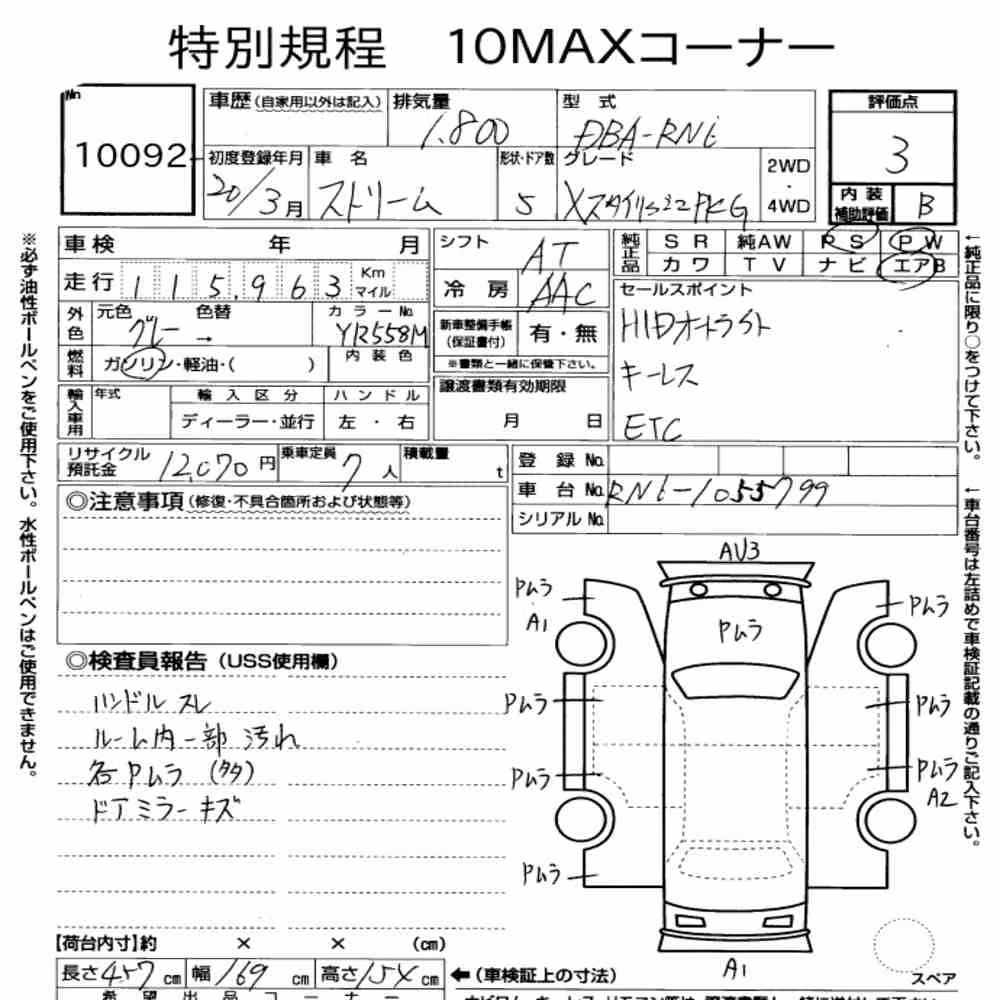 特別規程 10MAXコーナー
No
10092
車歴(自家用以外は記入)
排気量
1.800
型式
DBA-RN6
評価点
3
初度登録年月
20/3月
車名
ストリーム
形状・ドア数
5
グレード
Xスタイリッシュ PKG
2WD
・
4WD
内装
補助評価
B
車検 年 月
シフト
AT
純正品
SR 純AW PS PW
カワ TV ナビ エアB
走行 115.963 Km マイル
冷房
AAC
セールスポイント
HIDオートライト
キーレス
ETC
外色
元色 色替
グレー →
カラーNo
YR558M
新車整備手帳
(保証書付)
有・無
※書類と一緒に保管下さい。
燃料
ガソリン・軽油・( )
内装色
譲渡書類有効期限
月 日
輸入車用
年式
輸入区分
ディーラー・並行
ハンドル
左・右
リサイクル
預託金
12,070円
乗車定員
7人
積載量
t
登録No.
車台No.
RN6-1055799
シリアルNo.
◎注意事項(修復・不具合箇所および状態等)
◎検査員報告(USS使用欄)
ハンドル スレ
ルーム内一部 汚れ
各Pムラ (多)
ドアミラー キズ
AU3
Pムラ
A1
Pムラ
Pムラ
Pムラ
Pムラ
Pムラ
Pムラ
A2
Pムラ
A1
スペア
【荷台内寸】約 × × (cm)
長さ457cm 幅169cm 高さ154cm
←(車検証上の寸法)
希望出品コーナー
※必ず油性ボールペンをご使用下さい。水性ボールペンはご使用できません。
←純正品に限り○をつけて下さい。
←車台番号は左詰めで車検証記載の通りご記入下さい。